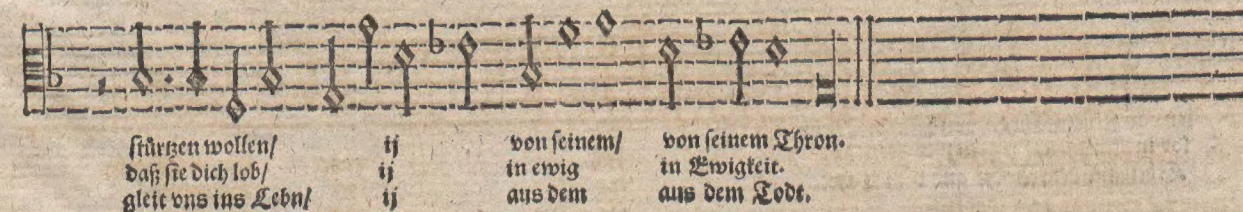 stürtzen wollen/ ij von seinem/ von seinem Thron.
daß sie dich lob/ ij in ewig in Ewigkeit.
gleit vns ins Lebn/ ij aus dem aus dem Todt.